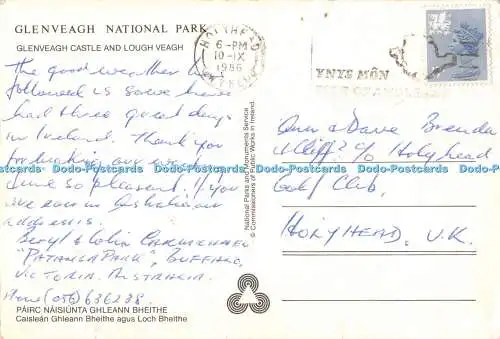 GLENVEAGH NATIONAL PARK
GLENVEAGH CASTLE AND LOUGH VEAGH
The good weather has
followed us so we have
had three great days
in Ireland. Thank you
for making our week
June so pleasant. If you
are ever in Australia our
address is.
Beryl & Colin
"PATANGA PARK", BUFFALO,
VICTORIA. AUSTRALIA.
Phone (056) 636238.
PÁIRC NÁISIÚNTA GHLEANN BHEITHE
Caisleán Ghleann Bheithe agus Loch Bheithe
National Parks and Monuments Service
© Commissioners of Public Works in Ireland.
HOLYHEAD
6-PM
10-IX
1986
YNYS MÔN
Ann & Dave Brenda
& Cliff? c/o Holyhead
Golf Club,
HOLYHEAD, U.K.
Dodo-Postcards Dodo-Postcards Dodo-Postcards Dodo-Postcards Dodo-Postcards Dodo-Postcards